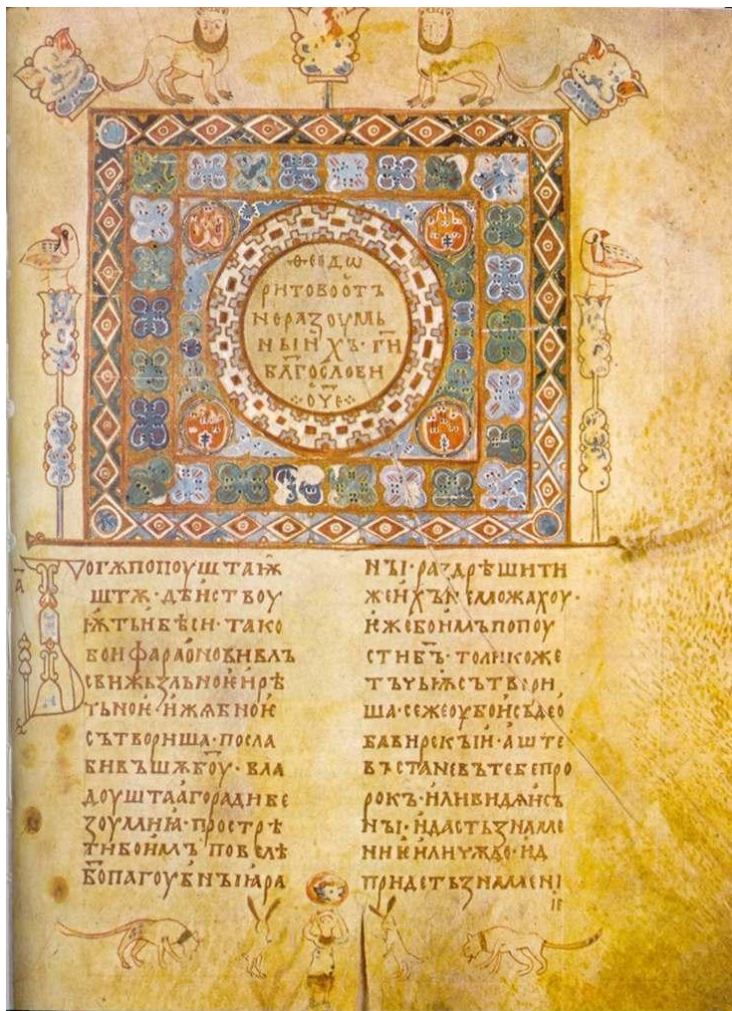 ѲЕОДѠ
РИТОВООТЪ
НЕРАЗОУМЬ
НЫИХЪ·ГИ҃
БЛ҃ГОСЛОВИ
О҃ЧЕ
БОГѪПОПОУШТАѬ
ШТѪ·ДѢИСТВОУ
ѬТЬИБѢСИ·ТАКО
БОИФАРАОНОВИВЛЪ
СВИЖЬЗЛЬНОѤИРѢ
ТЬНОѤИЖѦБНОѤ
СЪТВОРИША·ПОСЛА
БИВЪШѪБОУ҃·ВЛА
ДОУШТААГОРАДИБЕ
ЗОУМИꙖ·ПРОСТРѢ
ТИБОИМЪПОВЕЛѢ
Б҃ОПАГОУБНЫІѦРА
НЫ·РАЗДРѢШИТИ
ЖЕИХЪНЕМОЖАХОУ·
ѤЖЕБОИМЪПОПОУ
СТИБЪ҃·ТОЛИКОЖЕ
ТЪЧЬѬСЪТВОРИ
ША·СЕЖЕОУБОИСЬДЕО
БАВИРЕКЪІИ·АШТЕ
ВЪСТАНЕВЪТЕБЕПРО
РОКЪ·ИЛИВИДѦИСЪ
НЫ·ИДАСТЬЗНАМЕ
НИѤИЛИЧУДО·ИД
ПРИДЕТЬЗНАМЕНІ
ІЕ